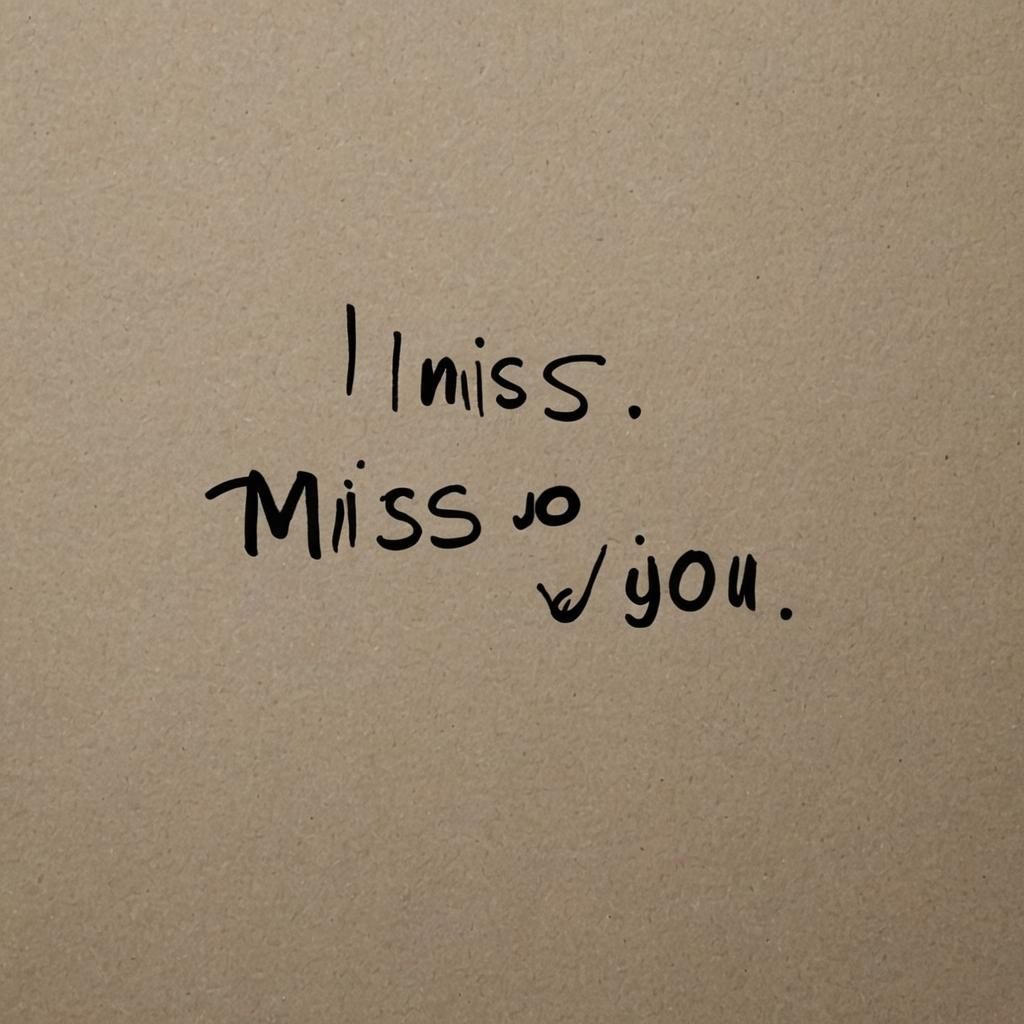 I I miss.
Miss JO
you.